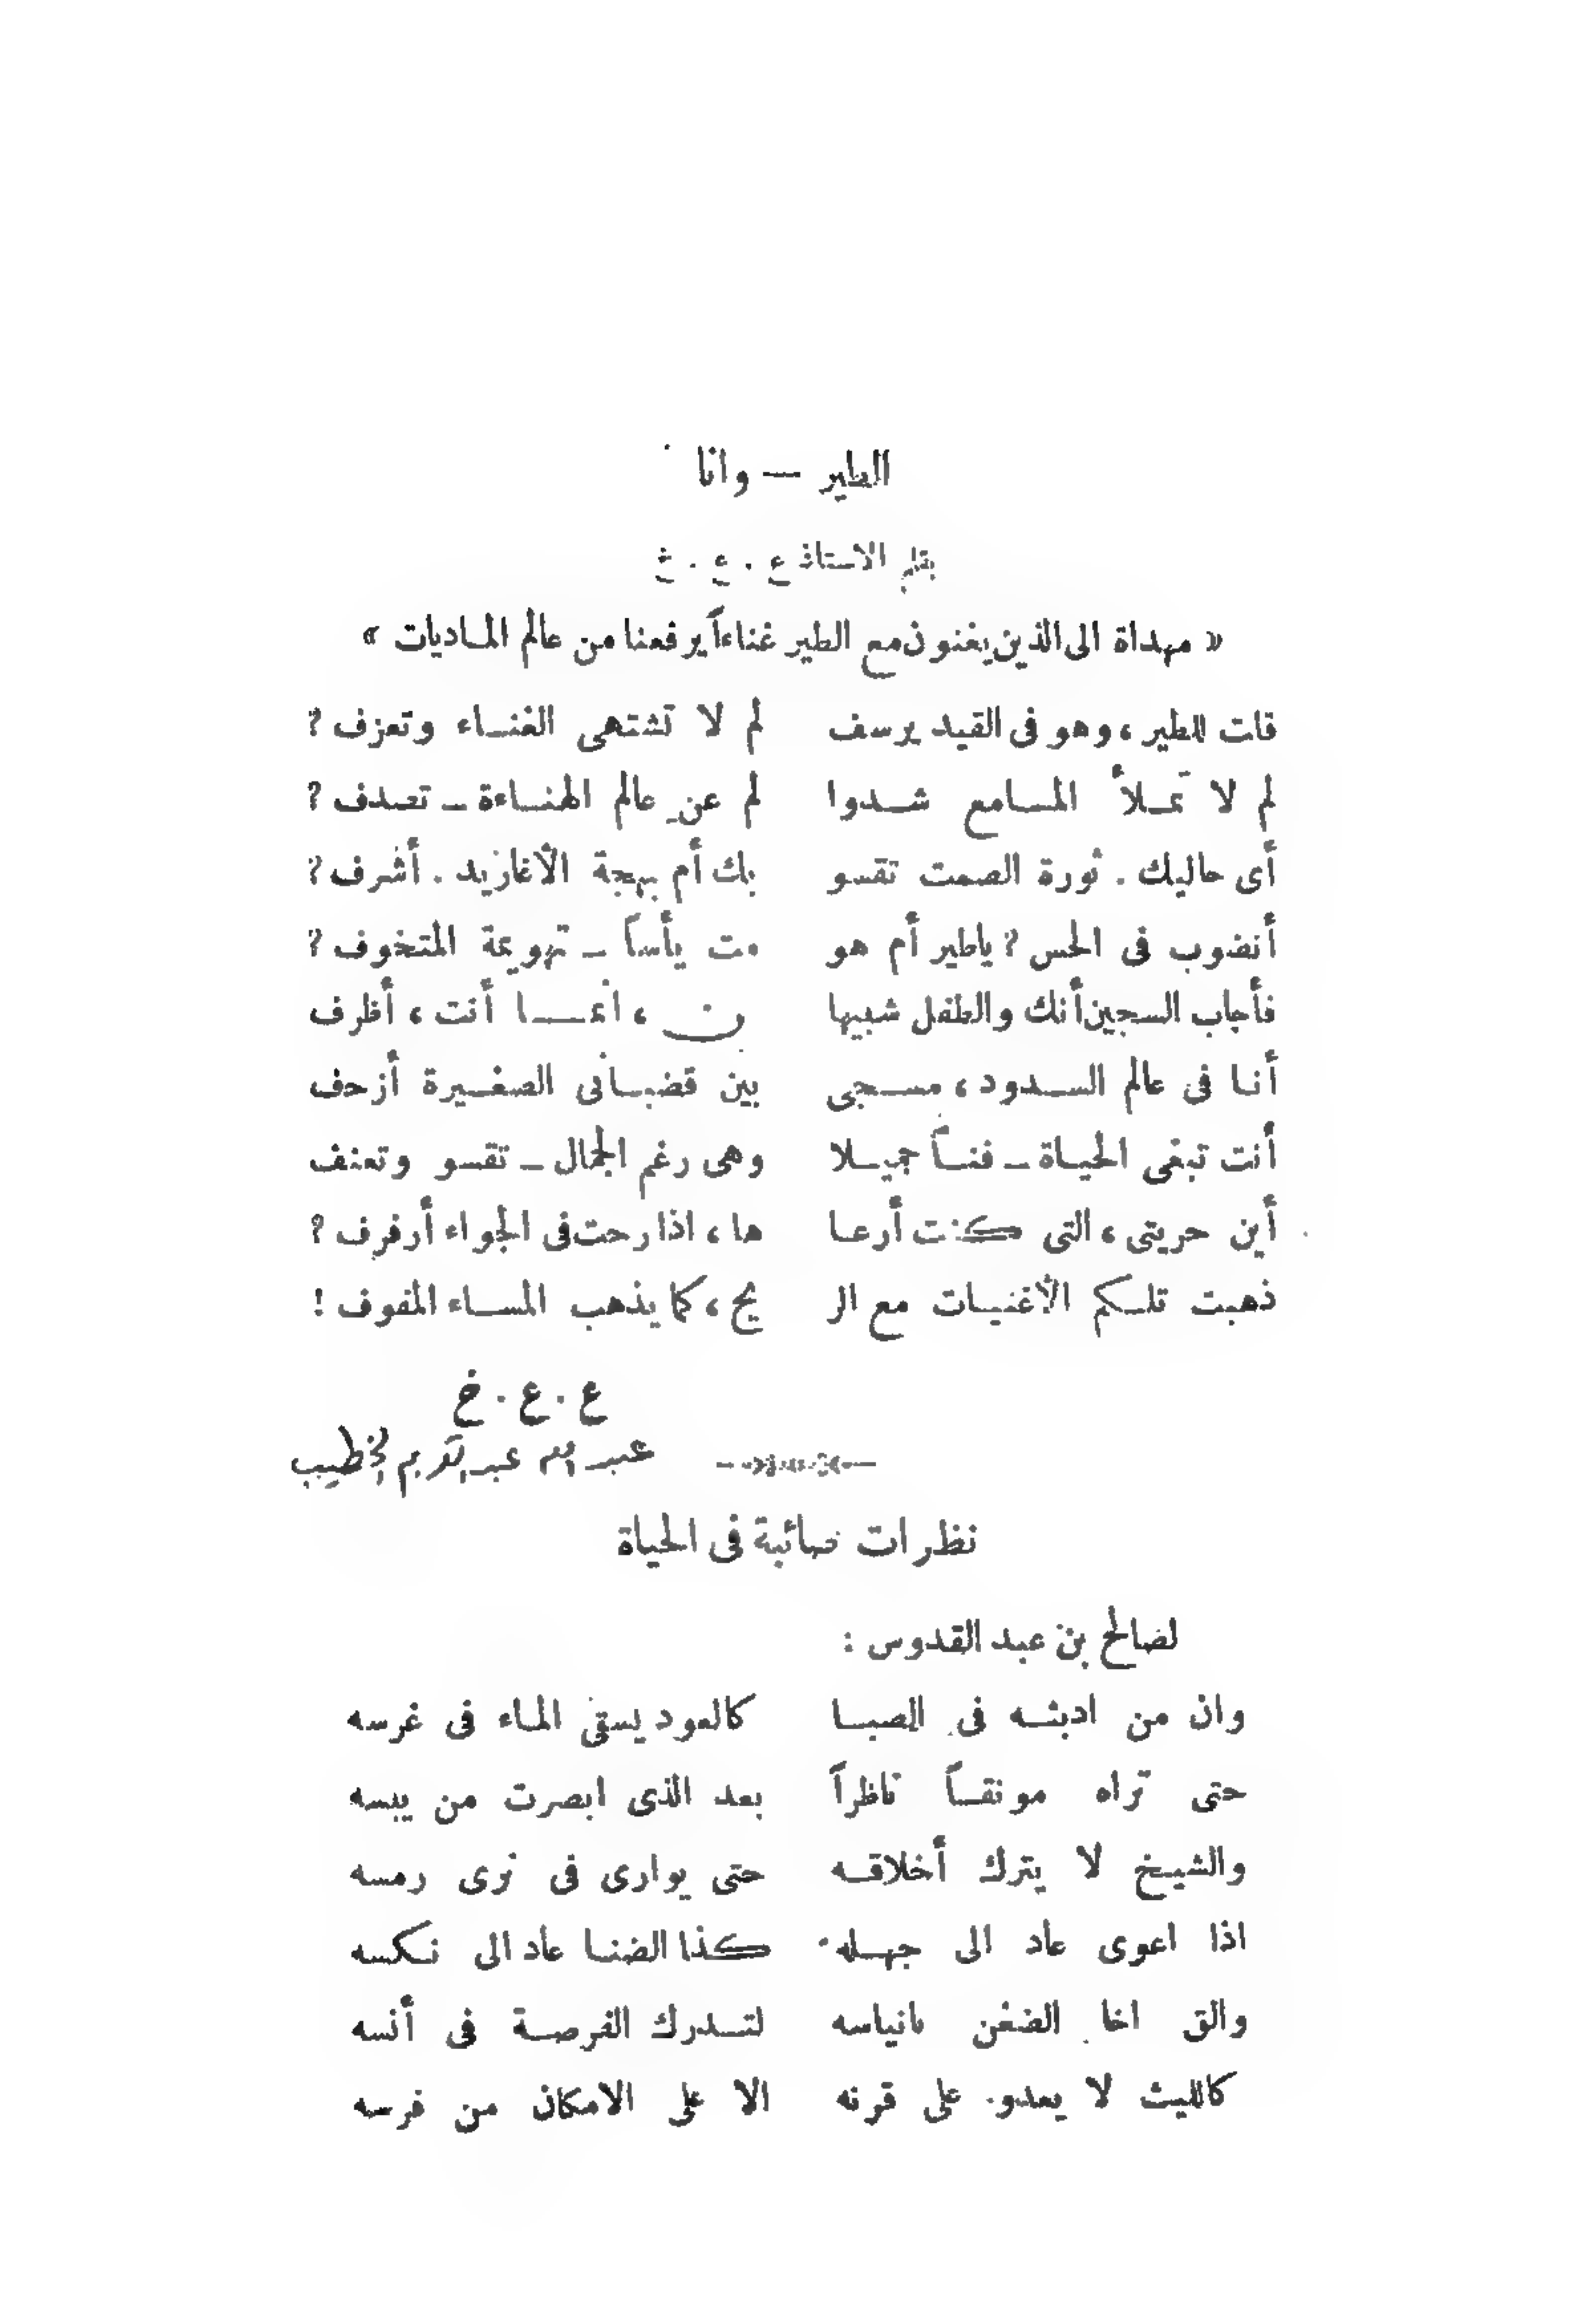 الطير — وانا
بقلم الاستاذ ع . ع . خ
« مهداة الى الذين يغنون مع الطير غناءاً يرفعنا من عالم الماديات »
قلت للطير ، وهو فى القيد يرسف لم لا تشتهى الغناء وتعزف ?
لم لا تملأ المسامع شدوا لم عن عالم الهناءة – تصدف ?
أى حاليك . ثورة الصمت تقسو بك أم بهجة الأغاريد . أشرف ?
أنضوب فى الحس ? ياطير أم هو مت يأساً – تهويمة المتخوف ?
فأجاب السجين أنك والطفل شبيها ن ، أنما أنت ، أظرف
أنا فى عالم السدود ، مسجى بين قضبانى الصغيرة أزحف
أنت تبغى الحياة – فناً جميلا وهى رغم الجمال – تقسو وتعنف
أين حريتى ، التى كنت أرعا ها ، اذا رحت فى الجواء أرفرف ?
ذهبت تلكم الأغنيات مع الر يح ، كما يذهب المساء المفوف !
ع . ع . خ
عبد الله عبد الكريم الخطيب
نظرات صائبة فى الحياة
لصالح بن عبد القدوس :
وان من ادبته فى الصبا كالعود يسقى الماء فى غرسه
حتى تراه مونقاً ناظراً بعد الذى ابصرت من يبسه
والشيخ لا يترك أخلاقه حتى يوارى فى ثرى رمسه
اذا اعوى عاد الى جهله كذا الضنا عاد الى نكسه
والق اخا الضغن بانياسه لتدرك الفرصة فى أنسه
كالليث لا يعدو على قرنه الا على الامكان من فرسه